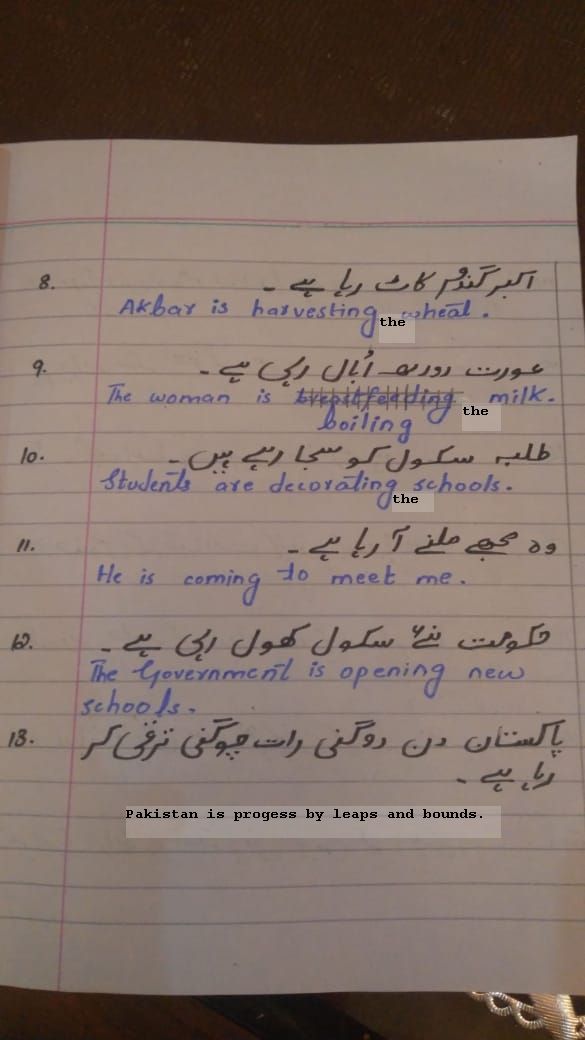 8. اکبر گندم کاٹ رہا ہے ۔
Akbar is harvesting wheat.
the
9. عورت دودھ اُبال رہی ہے ۔
The woman is breastfeeding milk.
the
boiling
10. طلبہ سکول کو سجا رہے ہیں ۔
Students are decorating schools.
the
11. وہ مجھے ملنے آ رہا ہے ۔
He is coming to meet me.
12. حکومت نئے سکول کھول رہی ہے ۔
The Government is opening new
schools.
13. پاکستان دن دوگنی رات چوگنی ترقی کر
رہا ہے ۔
Pakistan is progess by leaps and bounds.